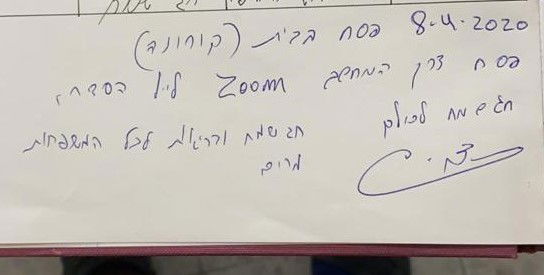 8.4.2020 פסח בבית (קורונה)
פסח דרך המחשב Zoom ליל הסדר.
חג שמח לכולם
חג שמח ובריאות לכל המשפחות
מרים